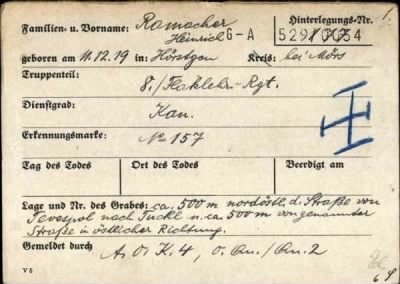 Familien- u. Vorname: Ramacher Hinterlegungs-Nr. 1.
Heinrich G-A 529
geboren am 11.12.19 in: Höstgen Kreis: bei Mörs
Truppenteil: 8./Flaklehr-Rgt.
Dienstgrad: Kan.
Erkennungsmarke: No 157
Tag des Todes Ort des Todes Beerdigt am
Lage und Nr. des Grabes: ca. 500 m nordöstl. d. Straße von
nach u. ca. 500 m von genannter
Straße in östlicher Richtung.
Gemeldet durch A.O.K. 4, o. Qu./Qu. 2
V 5